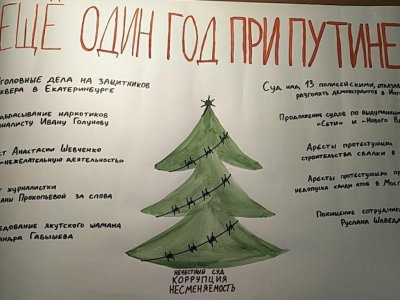 ЕЩЁ ОДИН ГОД ПРИ ПУТИНЕ
головные дела на защитников
квера в Екатеринбурге
дбрасывание наркотиков
рналисту Ивану Голунову
ст Анастасии Шевченко
«нежелательную деятельность»
журналистки
ны Прокопьевой за слова
едование якутского шамана
андра Габышева
Суд над 13 полицейскими, отказав
разгонять демонстрантов в Инг
Продолжение судов по выдуманны
«Сети» и «Нового Ве
Аресты протестующих
строительства свалки в
Аресты протестующих пр
недопуска кандидатов в Мосг
Похищение сотрудник
Руслана Шаведд
НЕЧЕСТНЫЙ СУД
КОРРУПЦИЯ
НЕСМЕНЯЕМОСТЬ